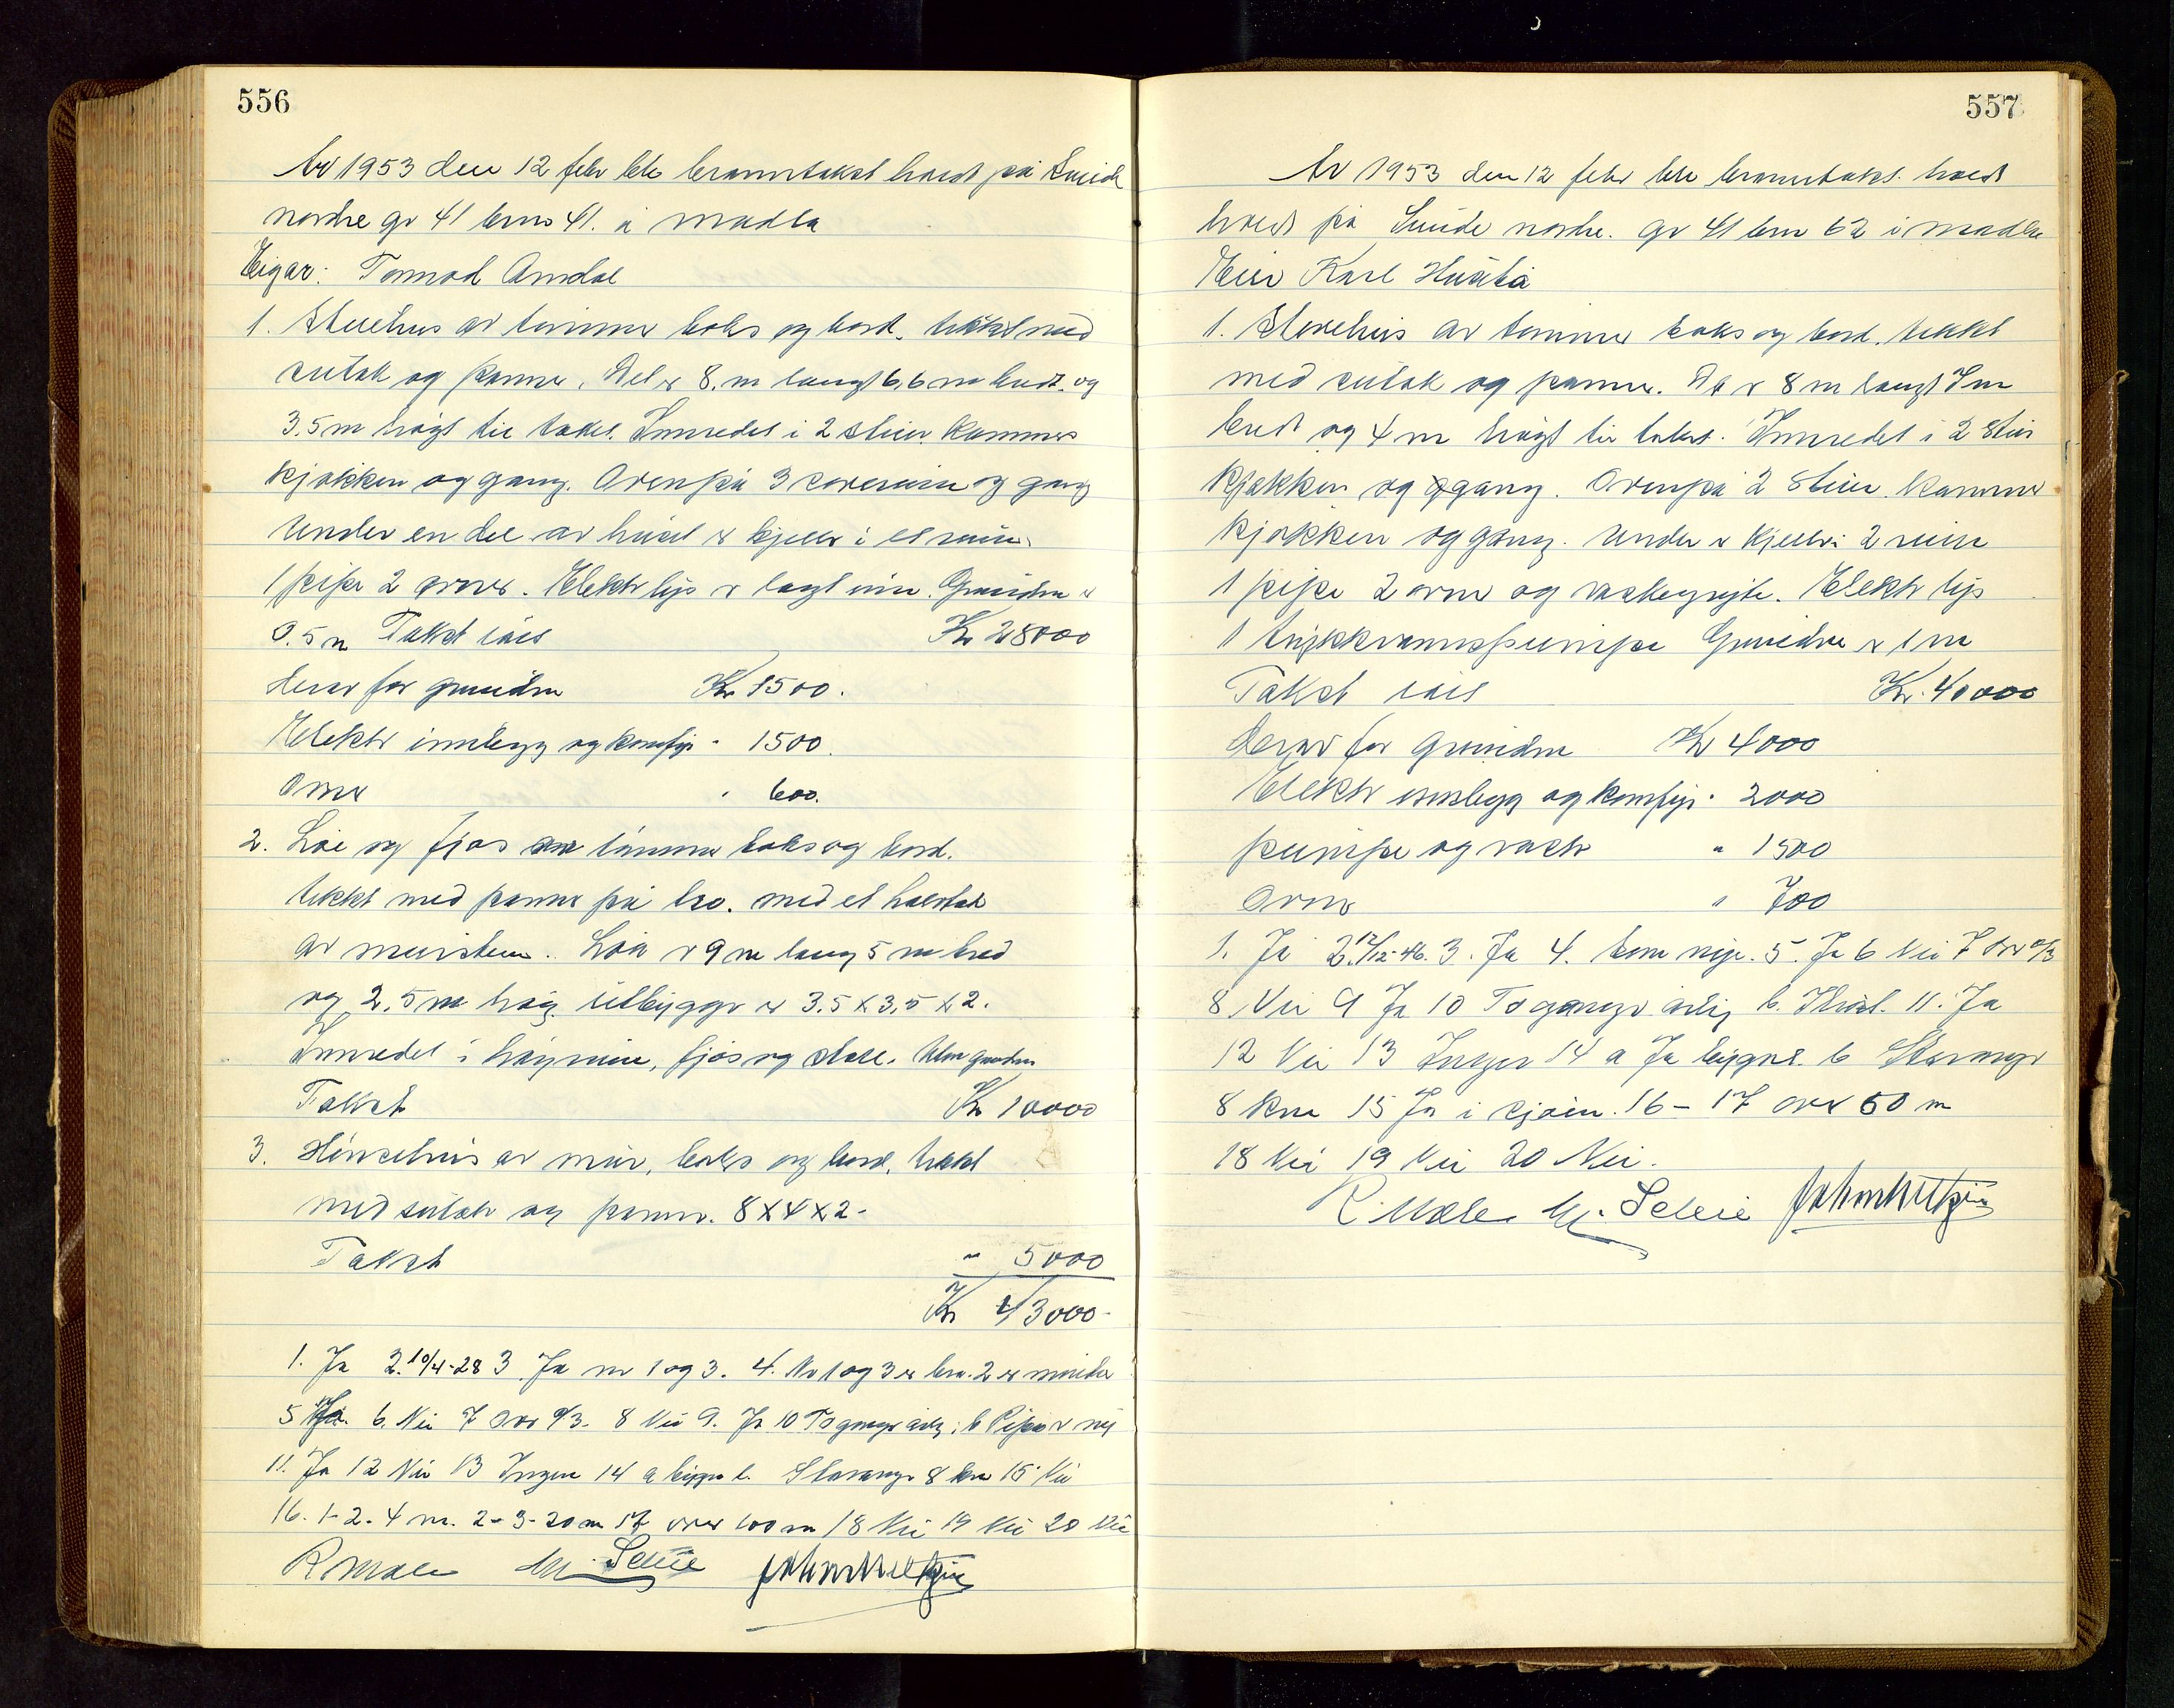 556
År 1953 den 12 febr ble branntakst holdt på Sunde
nordre gr 41 brno 41. i Madla
Eigar: Tormod Årrdal
1. Stuehus av tømmer boks og bord. tekket med
sutak og panner. Det er 8. m langt 6,6 m bredt. og
3.5 m høgt til taket. Innredet i 2 stuer kammers
kjøkken og gang. Ovenpå 3 soverum og gang
Under en del av huset er kjeller i et rum.
1 pipe 2 ovner. Elektr lys er lagt inn. Grunden er
0.5 m Takst i alt Kr 28000
derav for grunden Kr 1500.
Elektr innlegg og komfyr " 1500.
Ovner " 600.
2. Løe og fjøs av tømmer boks og bord.
tekket med panner på bro. med et halvtak
av murstein. Løa er 9 m lang 5 m bred
og 2.5 m høg utbygget er 3.5 x 3,5 x 2.
Innredet i høyrum, fjøs og stall. Uten grunden
Takst Kr 10000
3. Hønsehus av mur, boks og bord, tekket
med sutak og panner. 8 x 4 x 2.
Takst " 5000
Kr 43000-
1. Ja 2. 10/4-28 3. Ja nr 1 og 3. 4. Nr 1 og 3 er bra. 2 er mindre
5 Ja. 6. Nei 7 Over 2/3. 8 Nei 9. Ja 10 To ganger årlig. b Pipa er ny
11. Ja 12 Nei 13 Ingen 14 a bygn b. Stavanger 8 km 15 Nei
16. 1-2. 4 m. 2-3-20 m 17 over 100 m 18 Nei 19 Nei 20 Nei
557
År 1953 den 12 febr ble branntakst holdt
holdt på Sunde nordre. gr 41 brn 62 i Madla
Eier Karl
1. Stovehus av tømmer boks og bord. tekket
med sutak og panner. Det er 8 m langt 7 m
bredt og 4 m høgt til taket. Innredet i 2 stuer
kjøkken og gang. Ovenpå 2 stuer. kammer
kjøkken og gang. Under er kjeller i 2 rum
1 pipe 2 ovner og vaskegryte. Elektr lys
1 trykkvannspumpe Grunden er 1 m
Takst i alt Kr. 40000
derav for Grunden Kr 4000
Elektr innlegg og komfyr " 2000
pumpe og vask " 1500
Ovner " 700
1. Ja 2. 12/12-46. 3. Ja 4. Som nye. 5. Ja 6 Nei 7 Over 2/3
8 Nei 9 Ja 10 To ganger årlig b. 11. Ja
12 Nei 13 Ingen 14 a Ja bygnr. b Stavanger
8 km 15 Ja i sjøen. 16 - 17 over 50 m
18 Nei 19 Nei 20 Nei.